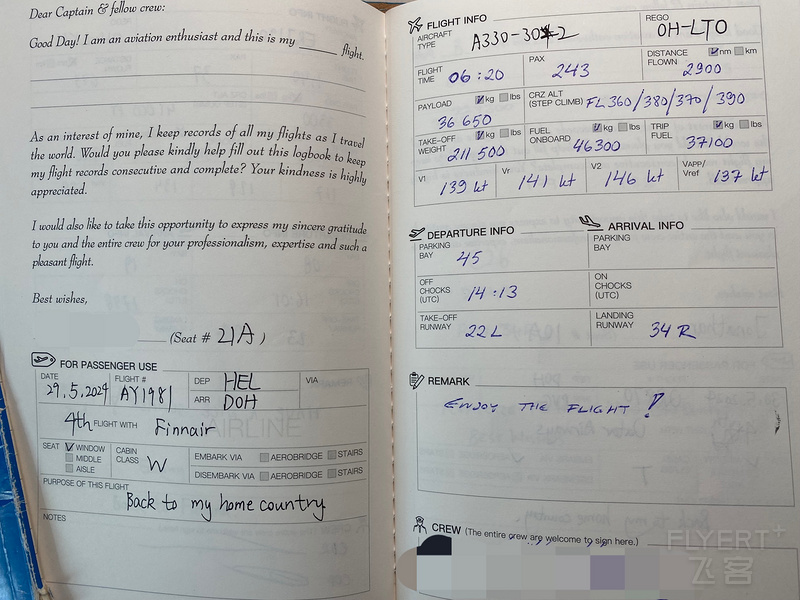 Dear Captain & fellow crew:
Good Day! I am an aviation enthusiast and this is my ______ flight.
As an interest of mine, I keep records of all my flights as I travel
the world. Would you please kindly help fill out this logbook to keep
my flight records consecutive and complete? Your kindness is highly
appreciated.
I would also like to take this opportunity to express my sincere gratitude
to you and the entire crew for your professionalism, expertise and such a
pleasant flight.
Best wishes,
(Seat # 21A)
FOR PASSENGER USE
DATE 29.5.2024 FLIGHT # AY1981 DEP HEL VIA
ARR DOH
4th FLIGHT WITH Finnair
AIRLINE
SEAT WINDOW MIDDLE AISLE
CABIN CLASS W
EMBARK VIA AEROBRIDGE STAIRS
DISEMBARK VIA AEROBRIDGE STAIRS
PURPOSE OF THIS FLIGHT
Back to my home country
NOTES
FLIGHT INFO
AIRCRAFT TYPE A330-302 REGO OH-LTO
FLIGHT TIME 06:20 PAX 243 DISTANCE FLOWN nm km 2900
PAYLOAD kg lbs 36 650 CRZ ALT (STEP CLIMB) FL 360/380/370/390
TAKE-OFF WEIGHT kg lbs 211 500 FUEL ONBOARD kg lbs 46300 TRIP FUEL kg lbs 37100
V1 139 kt Vr 141 kt V2 146 kt VAPP/Vref 137 kt
DEPARTURE INFO
PARKING BAY 45
OFF CHOCKS (UTC) 14:13
TAKE-OFF RUNWAY 22L
ARRIVAL INFO
PARKING BAY
ON CHOCKS (UTC)
LANDING RUNWAY 34R
REMARK
ENJOY THE FLIGHT!
CREW (The entire crew are welcome to sign here.)
FLYERT+
飞客